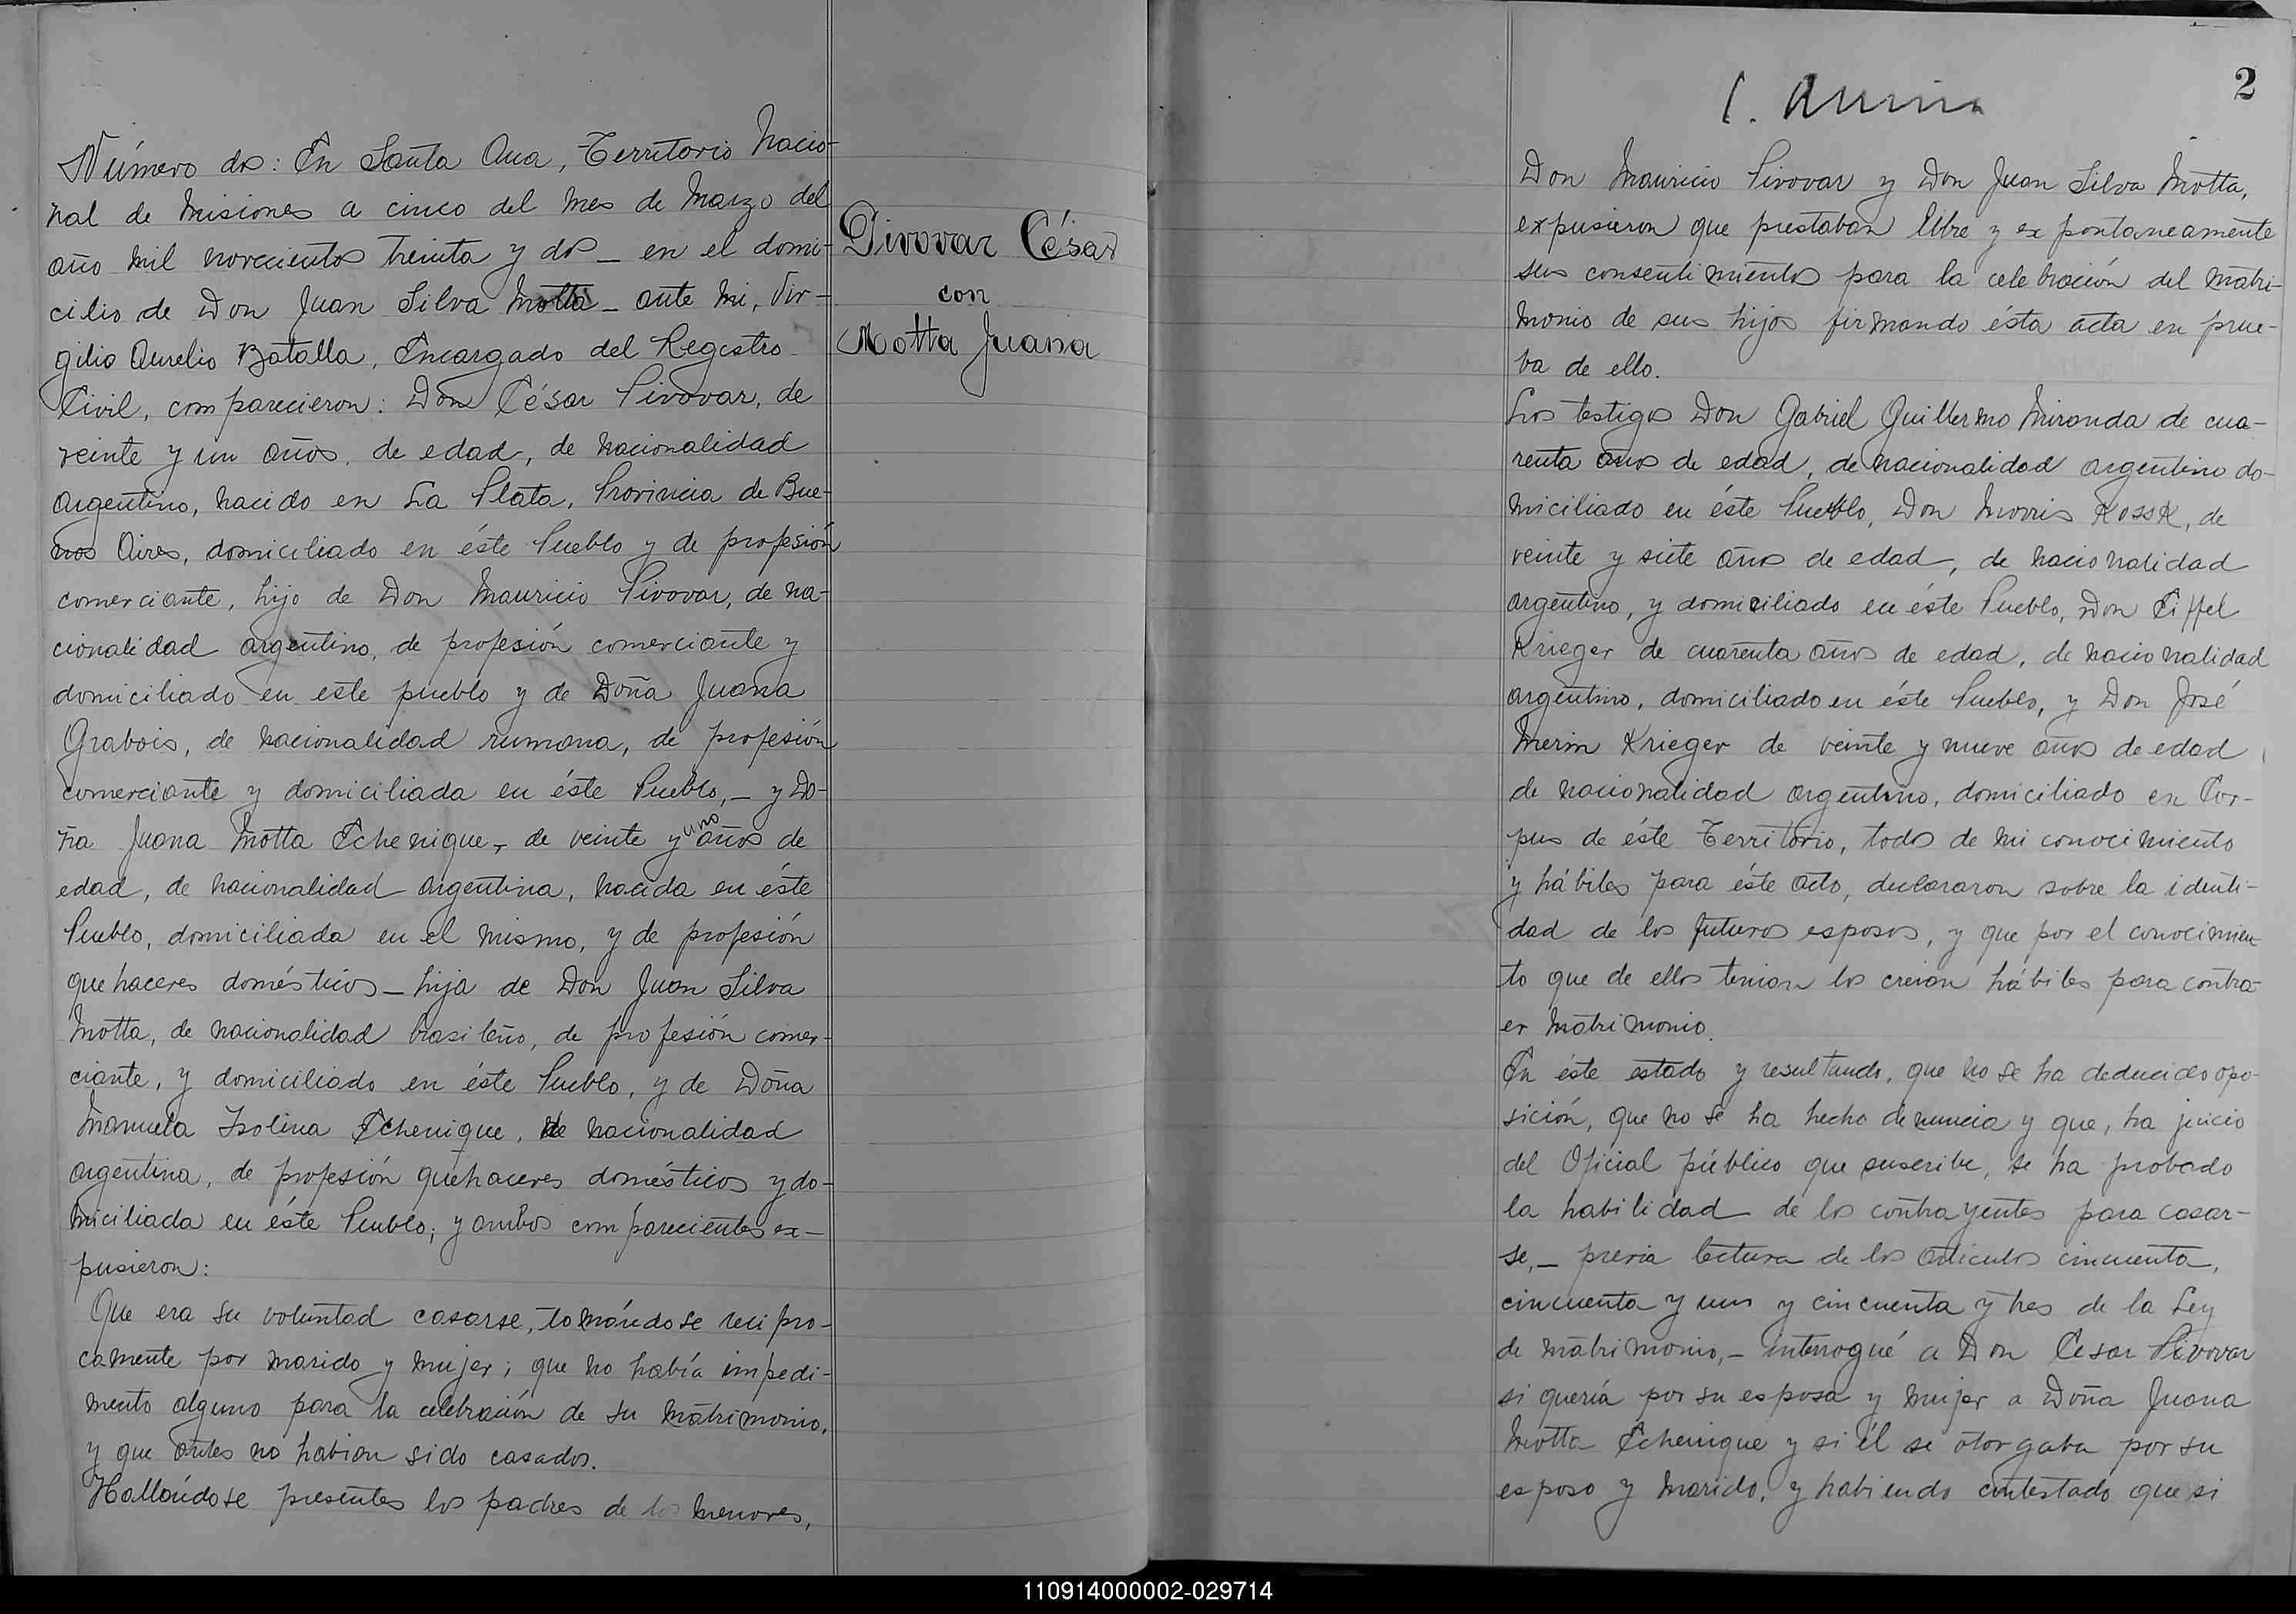 Número dos: En Santa Ana, Territorio Nacio-
nal de Misiones a cinco del mes de Marzo del
año mil novecientos treinta y dos _ en el domi-
cilio de Don Juan Silva Motta _ ante mi, Vir-
gilio Aurelio Batalla, Encargado del Registro
Civil, comparecieron: Don César Pivovar, de
veinte y un años, de edad, de nacionalidad
argentino, nacido en La Plata, Provincia de Bue-
nos Aires, domiciliado en éste Pueblo y de profesión
comerciante, hijo de Don Mauricio Pivovar, de na-
cionalidad argentino, de profesión comerciante y
domiciliado en este pueblo y de Doña Juana
Grabois, de nacionalidad rumana, de profesión
comerciante y domiciliada en éste Pueblo, _ y Do-
ña Juana Motta Echenique, de veinte y uno años de
edad, de nacionalidad argentina, nacida en éste
Pueblo, domiciliada en el mismo, y de profesión
quehaceres domésticos _ hija de Don Juan Silva
Motta, de nacionalidad brasileño, de profesión comer-
ciante, y domiciliado en éste Pueblo, y de Doña
Manuela Isolina Echenique, de nacionalidad
argentina, de profesión quehaceres domésticos y do-
miciliada en éste Pueblo; y ambos comparecientes ex-
pusieron:
Que era su voluntad casarse, tomándose recipro-
camente por marido y mujer; que no había impedi-
mento alguno para la celebración de su matrimonio,
y que antes no habian sido casados.
Hallándose presentes los padres de los menores,
Pivovar César
con
Motta Juana
2
Don Mauricio Pivovar y Don Juan Silva Motta,
expusieron que prestaban libre y expontaneamente
sus consentimientos para la celebración del matri-
monio de sus hijos firmando ésta acta en prue-
ba de ello.
Los testigos Don Gabriel Guillermo Miranda de cua-
renta años de edad, de nacionalidad argentino do-
miciliado en éste Pueblo, Don Morris Kossk, de
veinte y siete años de edad, de nacionalidad
argentino, y domiciliado en éste Pueblo, Don Eiffel
Krieger de cuarenta años de edad, de nacionalidad
argentino, domiciliado en éste Pueblo, y Don José
Merin Krieger de veinte y nueve años de edad
de nacionalidad argentino, domiciliado en Cor-
pus de éste Territorio, todos de mi conocimiento
y hábiles para éste acto, declararon sobre la identi-
dad de los futuros esposos, y que por el conocimien-
to que de ellos tenian los creian hábiles para contra-
er matrimonio.
En éste estado y resultando, que no se ha deducido opo-
sición, que no se ha hecho denuncia y que, ha juicio
del Oficial público que suscribe, se ha probado
la habilidad de los contrayentes para casar-
se, _ previa lectura de los articulos cincuenta,
cincuenta y uno y cincuenta y tres de la Ley
de matrimonio, _ interrogué a Don Cesar Pivovar
si quería por su esposa y mujer a Doña Juana
Motta Echenique y si él se otorgaba por su
esposo y marido, y habiendo contestado que si
110914000002-029714